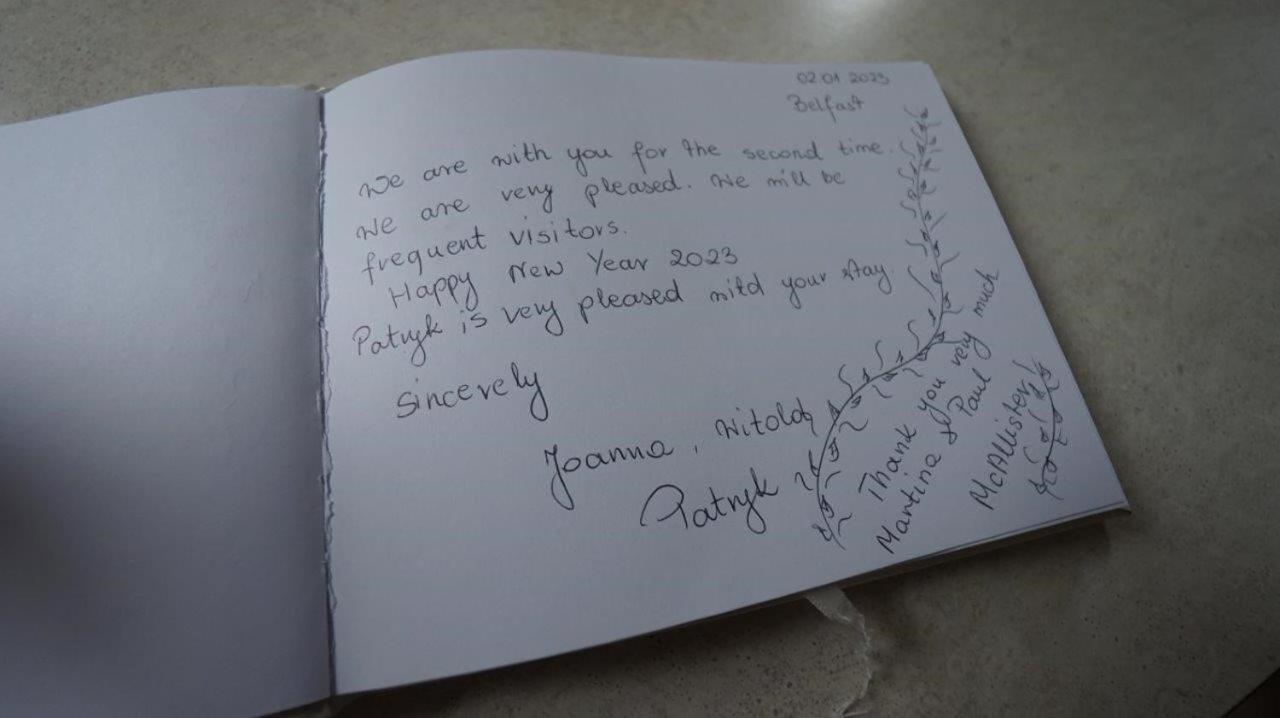 02.01.2023
Belfast
We are with you for the second time.
We are very pleased. We will be
frequent visitors.
Happy New Year 2023
Patryk is very pleased mitd your stay.
Sincerely
Joanna, Witold,
Patryk
Thank you very much
Martina & Paul
McAllister!